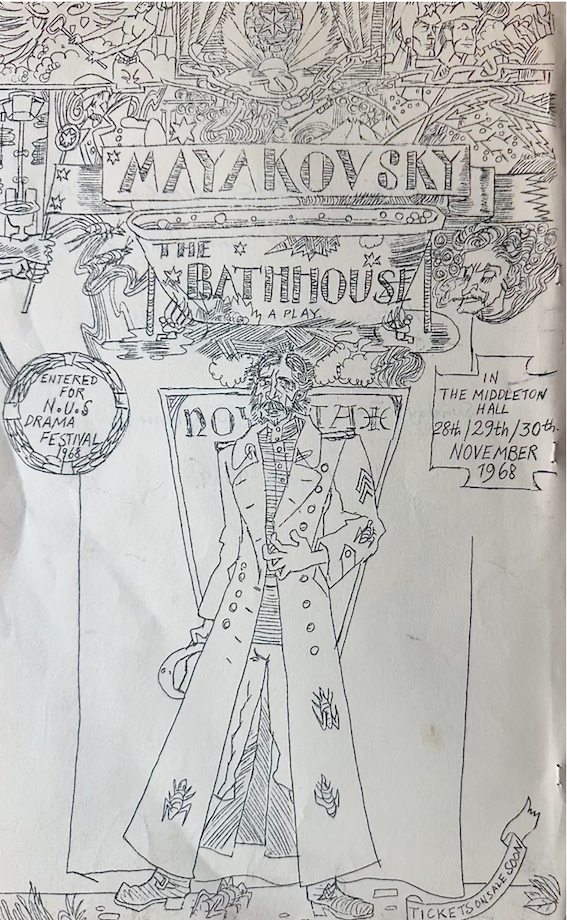 MAYAKOVSKY
THE
BATHHOUSE
A PLAY
ENTERED
FOR
N.U.S
DRAMA
FESTIVAL
1968
IN
THE MIDDLETON
HALL
28th/29th/30th.
NOVEMBER
1968
TICKETS ON SALE SOON